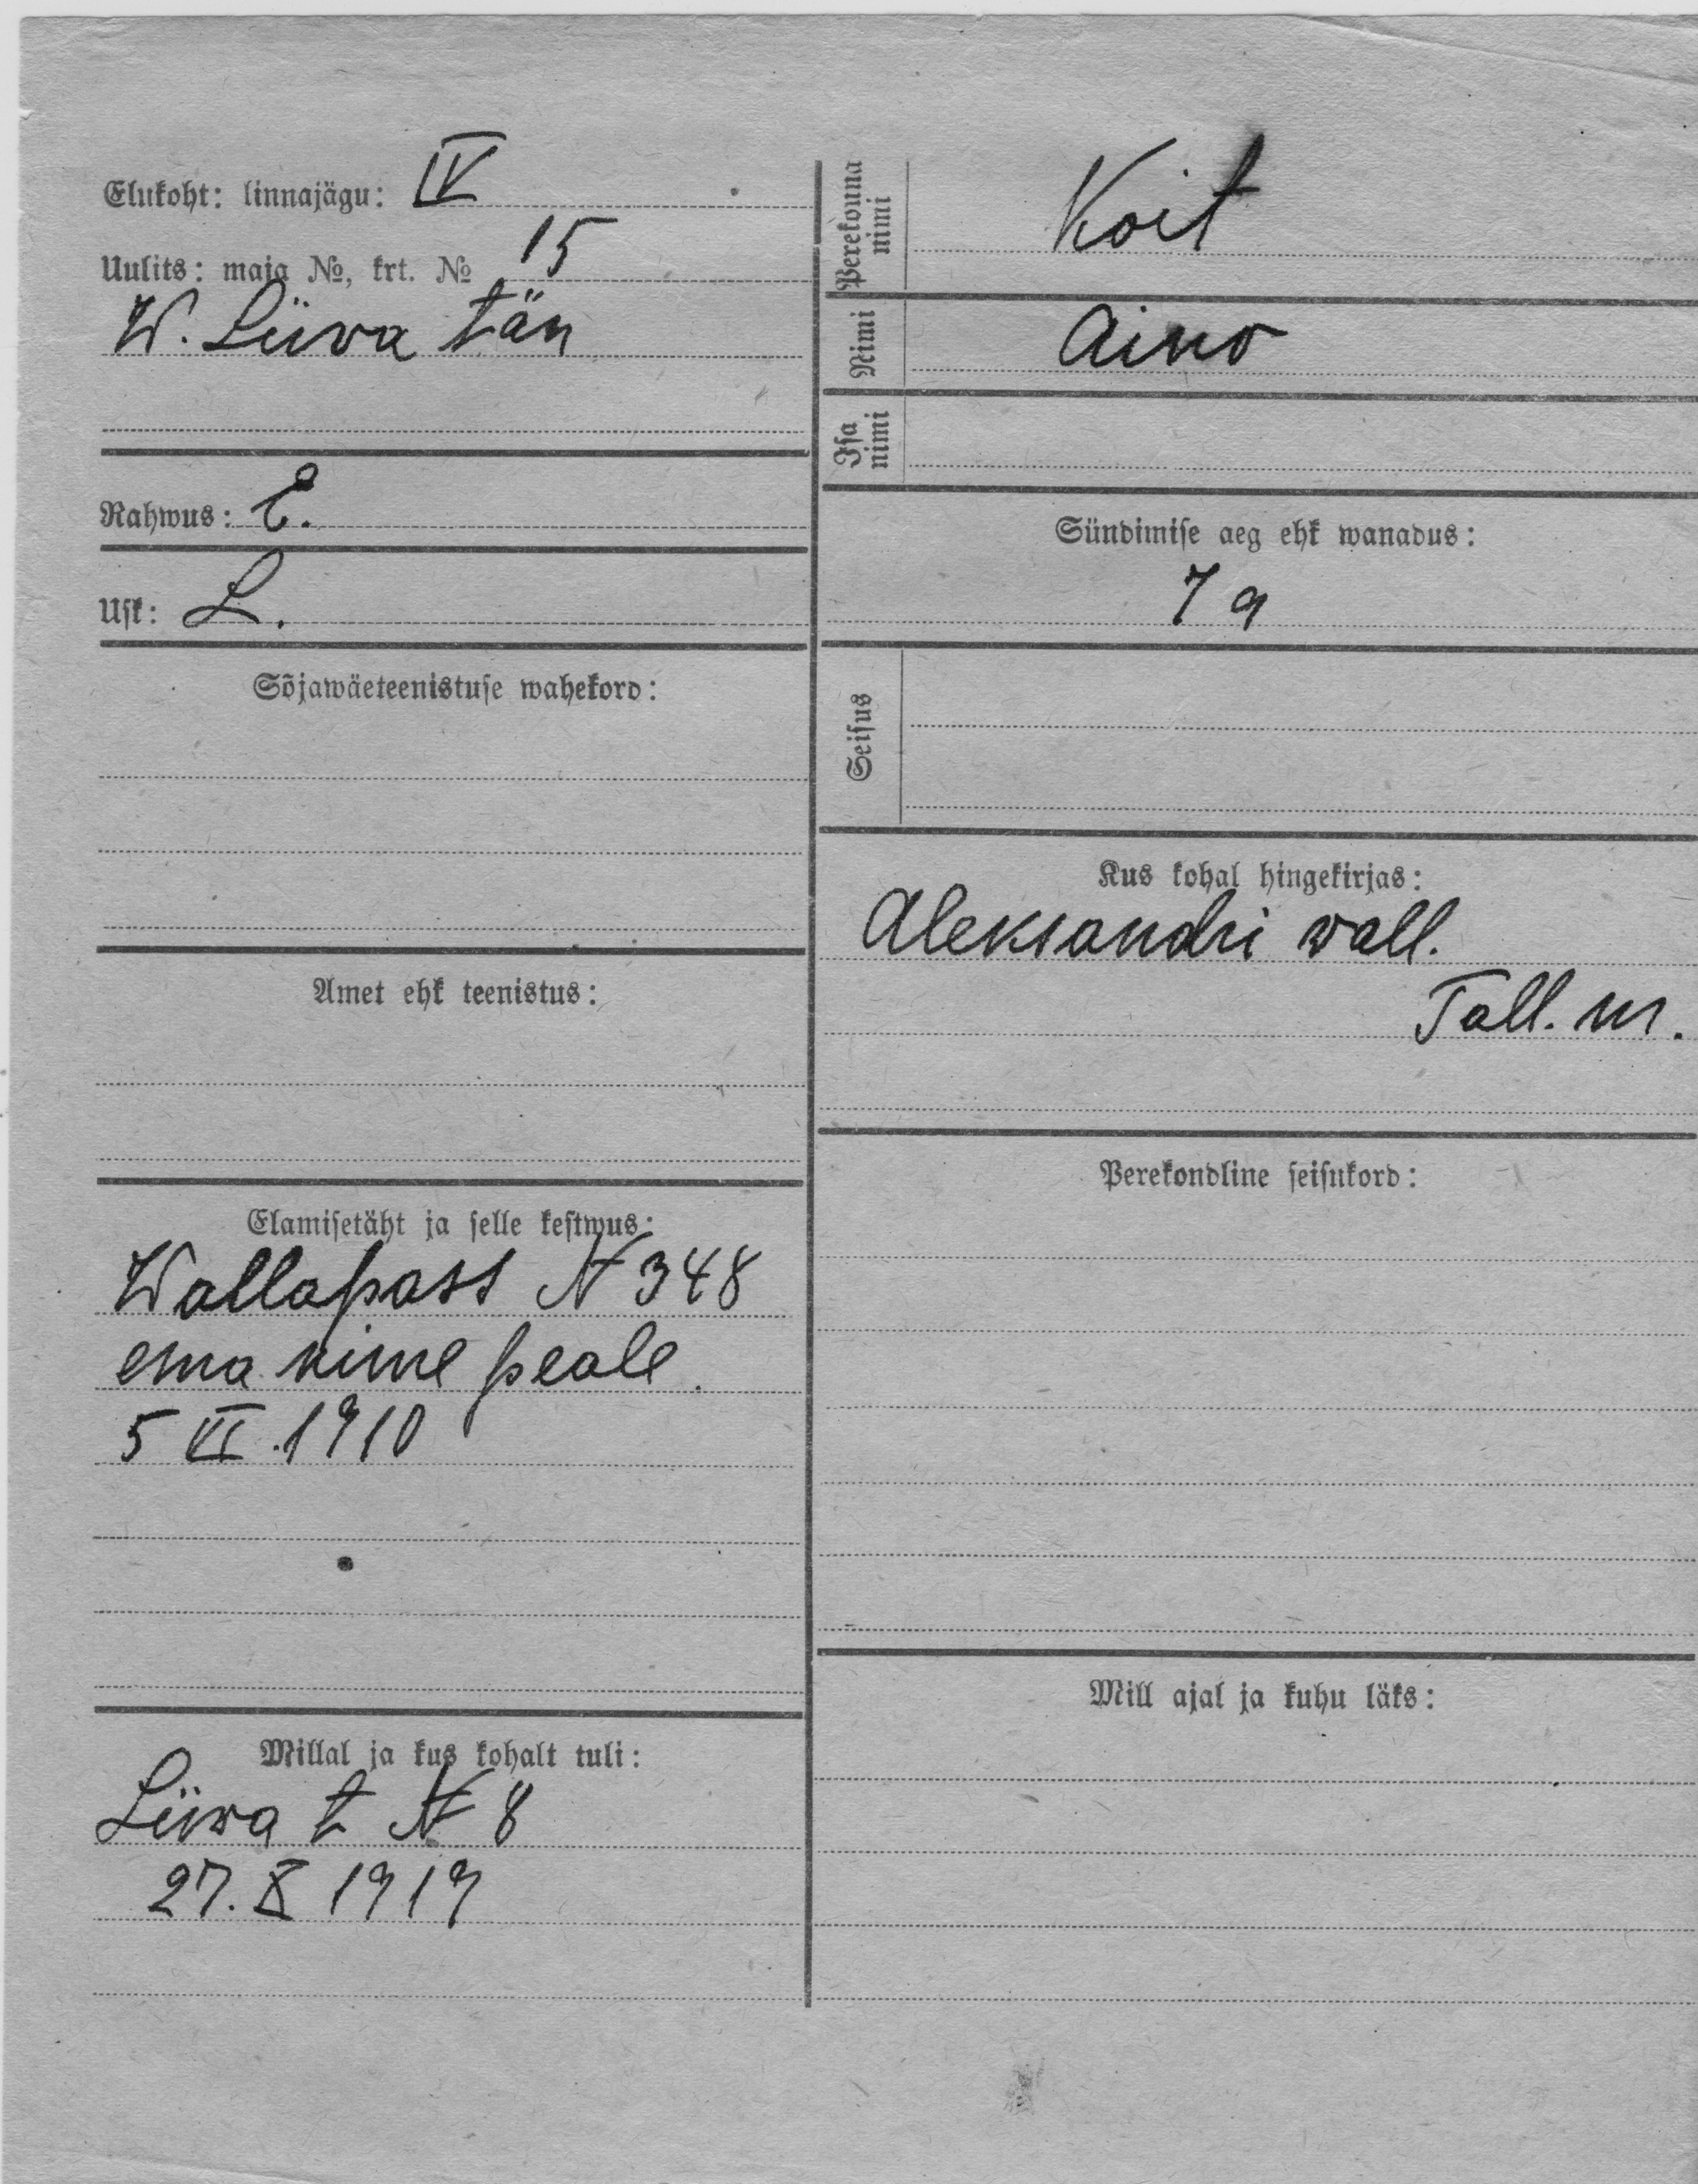 Elukoht: linnajägu: IV
Uulits: maja №, krt. № 15
W. Liiva tän
Rahwus: E.
Usk: L.
Sõjawäeteenistuse wahekord:
Amet ehk teenistus:
Elamisetäht ja selle kestwus:
Wallapass N 348
ema nime peale.
5 VI .1910
Millal ja kus kohalt tuli:
Liiva t N 8
27. X 1919
Perekonna nimi
Koit
Nimi
Aino
Isa nimi
Sündimise aeg ehk wanadus:
7 a
Seisus
Kus kohal hingekirjas:
Aleksandri wall.
Tall. m.
Perekondline seisukord:
Mill ajal ja kuhu läks: